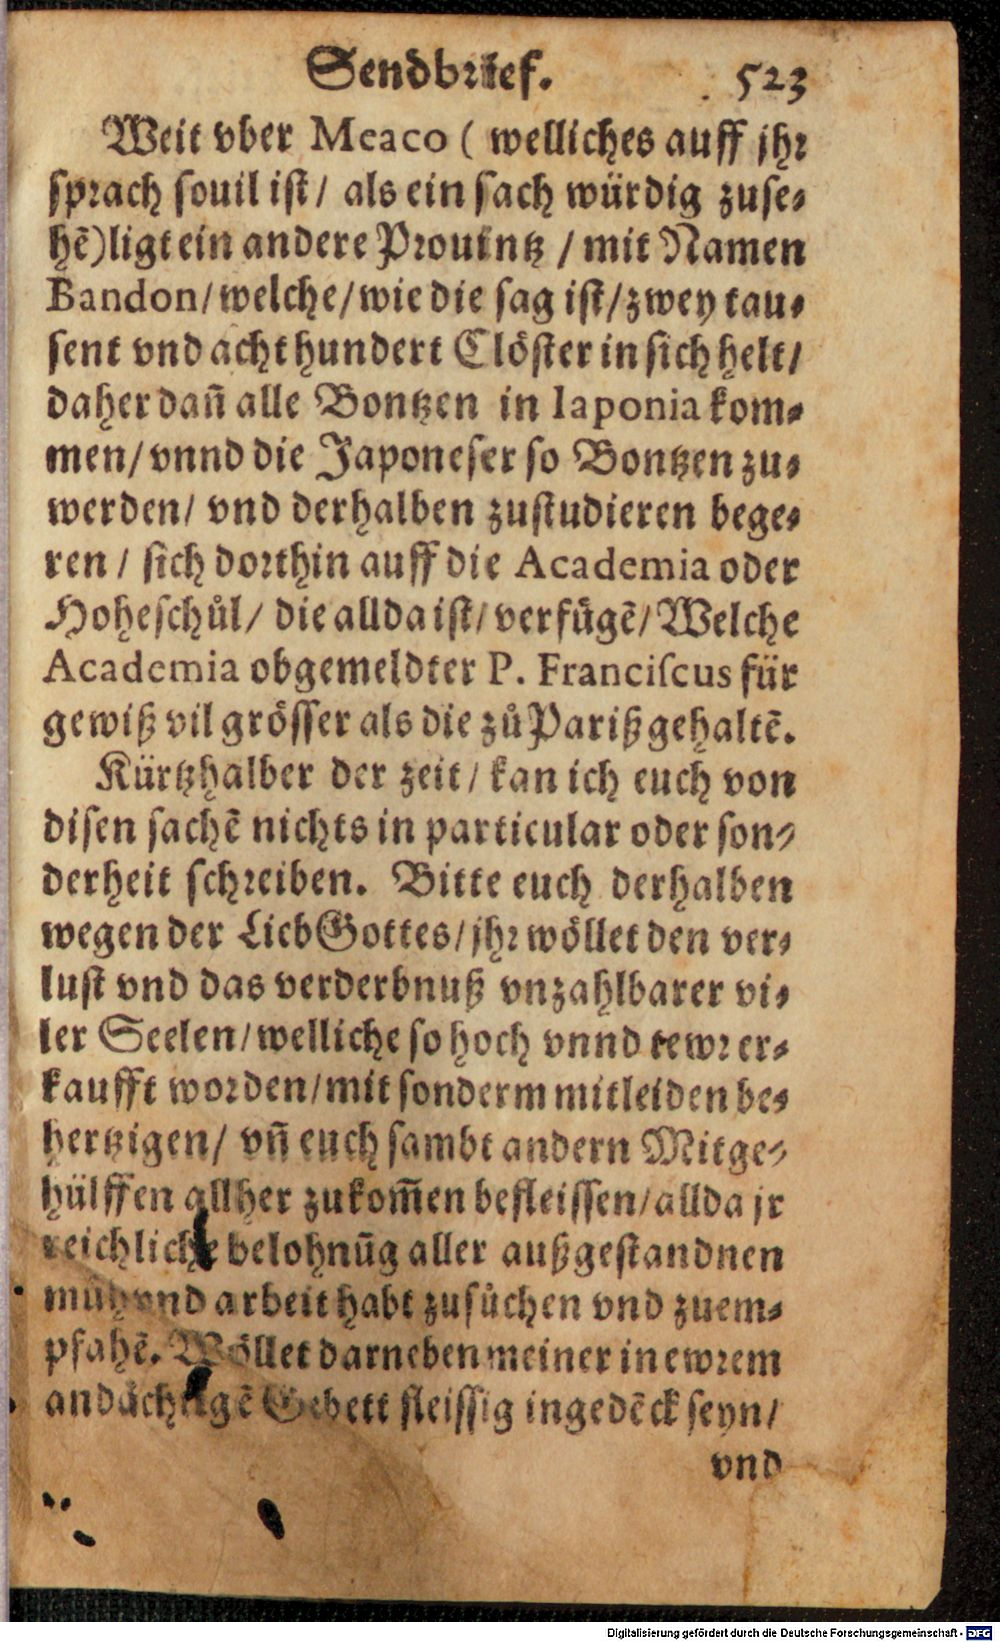 Sendbrief. 523
Weit vber Meaco ( welliches auff jhr
sprach souil ist/ als ein sach würdig zuse-
hē)ligt ein andere Prouintz / mit Namen
Bandon/welche/wie die sag ist/zwey tau-
sent vnd acht hundert Clöster in sich helt/
daher dañ alle Bontzen in Iaponia kom-
men/vnnd die Japoneser so Bontzen zu-
werden/ vnd derhalben zustudieren bege-
ren / sich dorthin auff die Academia oder
Hoheschůl/ die allda ist/ verfügē/ Welche
Academia obgemeldter P. Franciscus für
gewiß vil grösser als die zů Pariß gehaltē.
Kürtzhalber der zeit/ kan ich euch von
disen sachē nichts in particular oder son-
derheit schreiben. Bitte euch derhalben
wegen der Lieb Gottes/jhr wöllet den ver-
lust vnd das verderbnuß vnzahlbarer vi-
ler Seelen/welliche so hoch vnnd tewr er-
kaufft worden/mit sonderm mitleiden be-
hertzigen/ vñ euch sambt andern Mitge-
hülffen allher zukom̄en befleissen/allda jr
reichliche belohnūg aller außgestandnen
müh vnd arbeit habt zusůchen vnd zuem-
pfahē. Wöllet darneben meiner in ewrem
andächtigē Gebett fleissig ingedēck seyn/
vnd
Digitalisierung gefördert durch die Deutsche Forschungsgemeinschaft - DFG